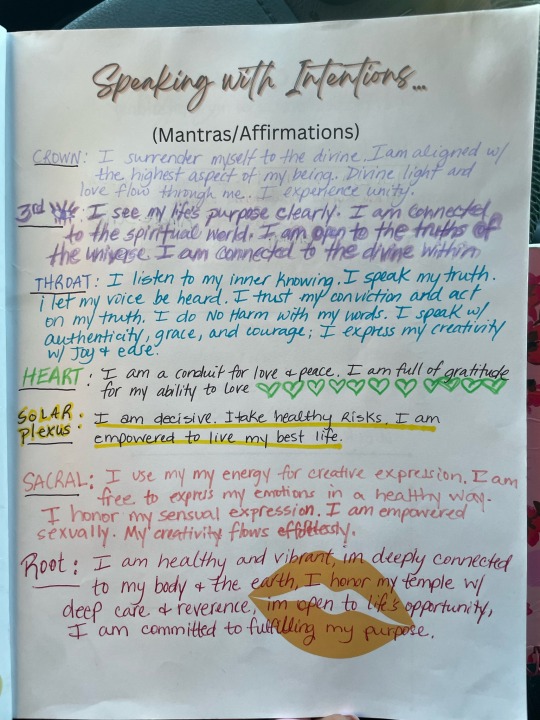 Speaking with Intentions...
(Mantras/Affirmations)
CROWN: I surrender myself to the divine. I am aligned w/
the highest aspect of my being. Divine light and
love flow through me. I experience unity.
3rd : I see my life's purpose clearly. I am connected
to the spiritual world. I am open to the truths of
the universe. I am connected to the divine within
THROAT: I listen to my inner knowing. I speak my truth.
i let my voice be heard. I trust my conviction and act
on my truth. I do NO Harm with my words. I speak w/
authenticity, grace, and courage; I express my creativity
w/ Joy & ease.
HEART: I am a conduit for love & peace. I am full of gratitude
for my ability to love ♡♡♡♡♡♡♡ ♡♡♡♡
SOLAR
plexus: I am decisive. I take healthy Risks. I am
empowered to live my best life.
SACRAL: I use my my energy for creative expression. I am
free to express my emotions in a healthy way.
I honor my sensual expression. I am empowered
sexually. My creativity flows effortlessly.
Root: I am healthy and vibrant, im deeply connected
to my body & the earth, I honor my temple w/
deep care & reverance, im open to life's opportunity,
I am committed to fulfilling my purpose.